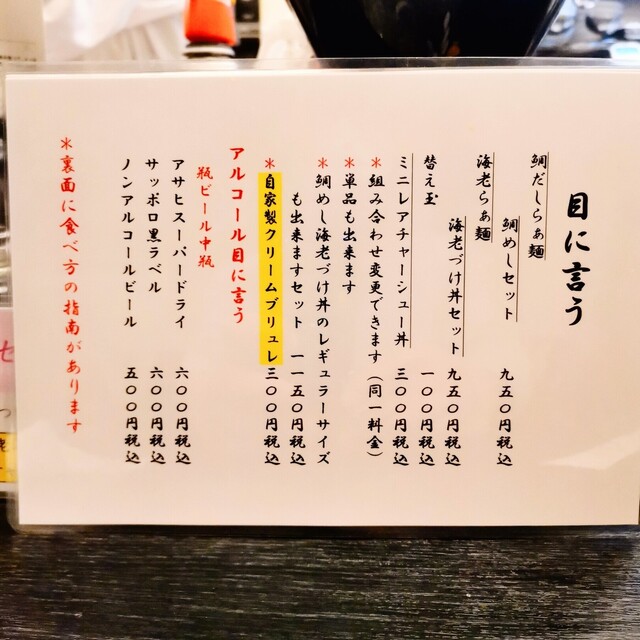 目に言う
鯛だしらぁ麺
鯛めしセット 九五〇円税込
海老らぁ麺
海老づけ丼セット 九五〇円税込
替え玉 一〇〇円税込
ミニレアチャーシュー丼 三〇〇円税込
＊組み合わせ変更できます（同一料金）
＊単品も出来ます
＊鯛めし海老づけ丼のレギュラーサイズ
も出来ますセット 一一五〇円税込
＊自家製クリームブリュレ 三〇〇円税込
アルコール目に言う
瓶ビール中瓶
アサヒスーパードライ 六〇〇円税込
サッポロ黒ラベル 六〇〇円税込
ノンアルコールビール 五〇〇円税込
＊裏面に食べ方の指南があります